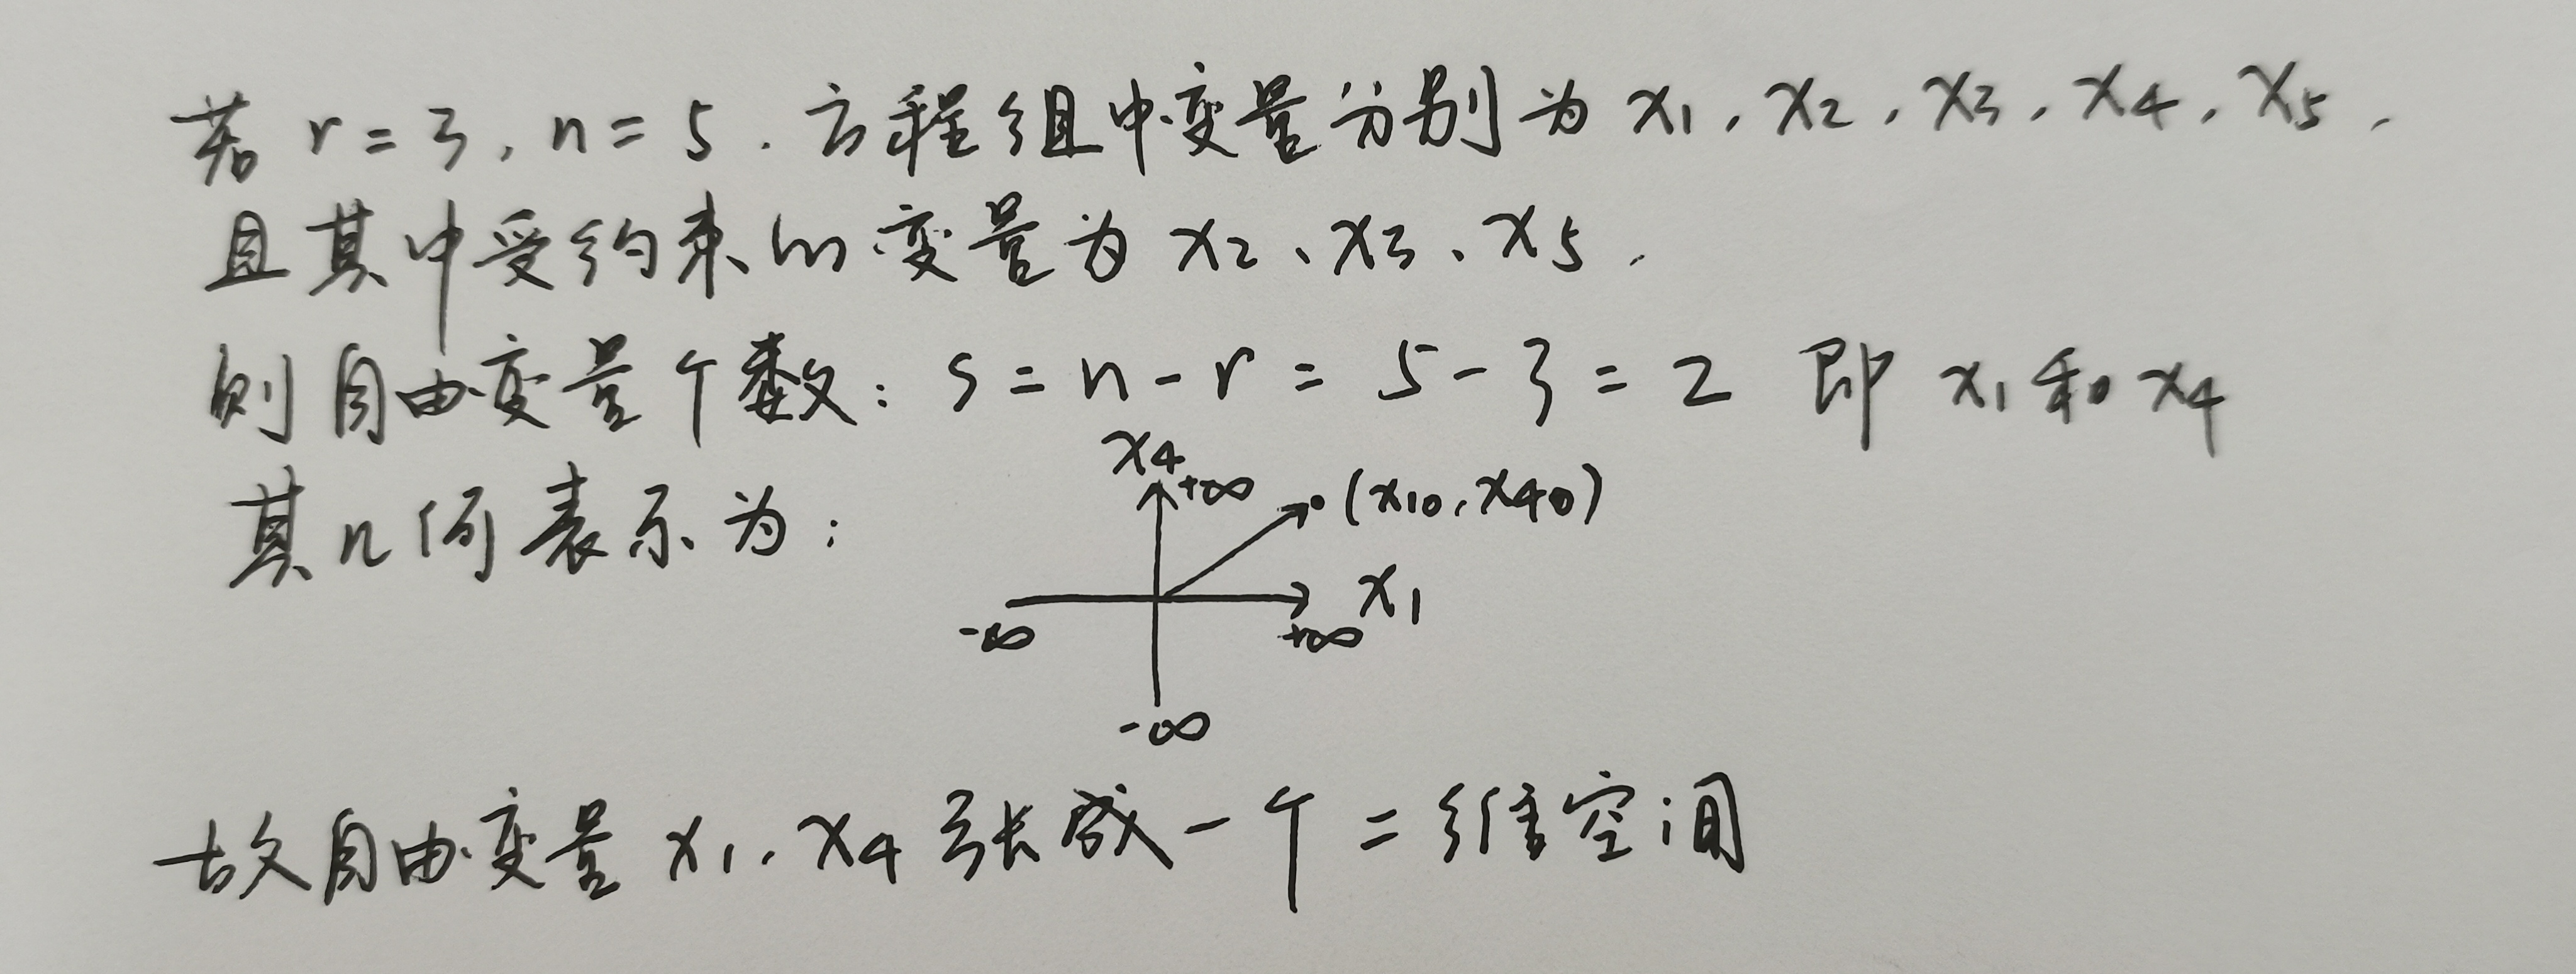 若 r = 3, n = 5. 方程组中变量分别为 x₁, x₂, x₃, x₄, x₅,
且其中受约束的变量为 x₂、x₃、x₅.
则自由变量个数: s = n - r = 5 - 3 = 2 即 x₁ 和 x₄
其几何表示为:
x₄
+∞
(x₁₀, x₄₀)
x₁
-∞
+∞
-∞
故自由变量 x₁, x₄ 张成一个二维空间